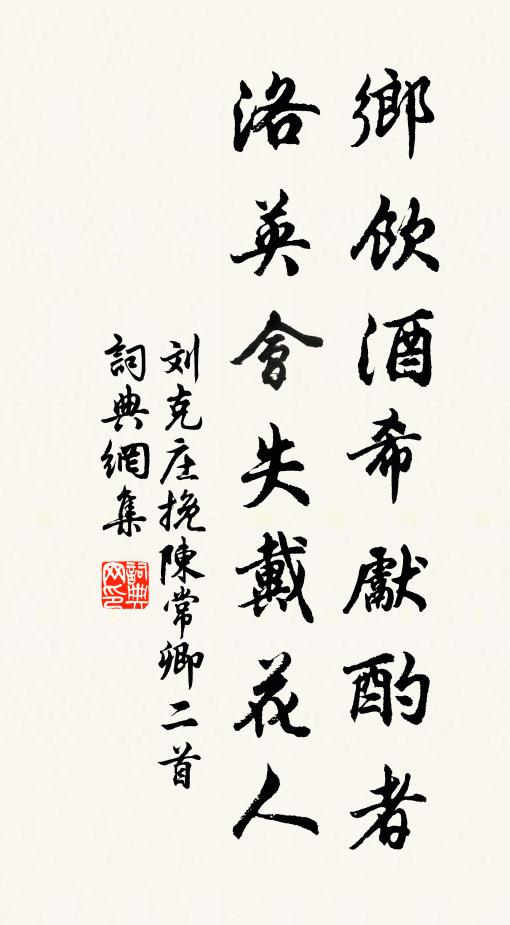 鄉飲酒希獻酌者
洛英會失戴花人
刘克庄挽陳常卿二首
詞典網集
詞典网印